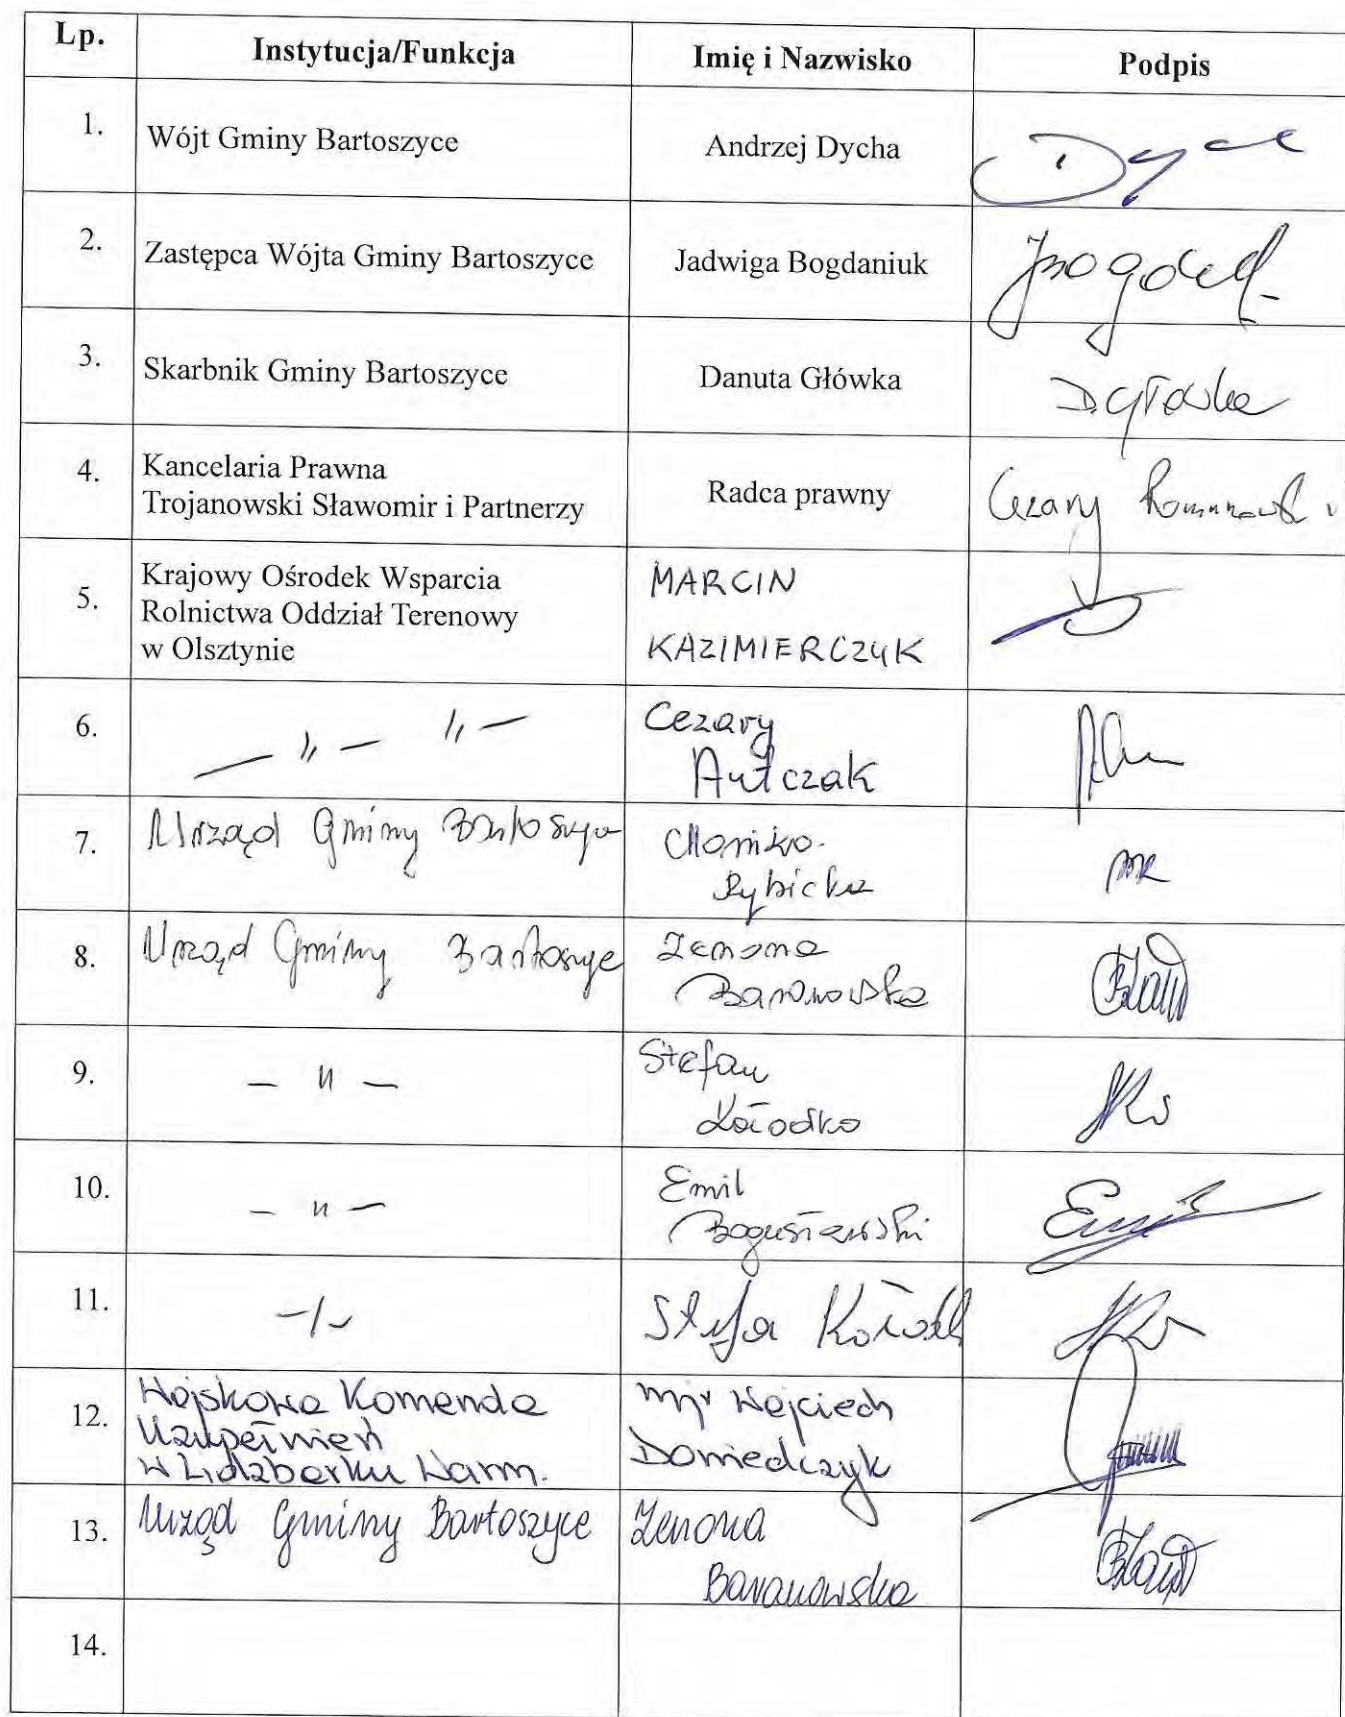 Lp. Instytucja/Funkcja Imię i Nazwisko Podpis
1. Wójt Gminy Bartoszyce Andrzej Dycha
2. Zastępca Wójta Gminy Bartoszyce Jadwiga Bogdaniuk
3. Skarbnik Gminy Bartoszyce Danuta Główka D. Główka
4. Kancelaria Prawna
Trojanowski Sławomir i Partnerzy Radca prawny Cezary
5. Krajowy Ośrodek Wsparcia
Rolnictwa Oddział Terenowy
w Olsztynie
MARCIN
KAZIMIERCZUK
6. — „ — „ —
Cezary
Antczak
7. Urząd Gminy Bartoszyce
Monika
Rybicka
MR
8. Urząd Gminy Bartoszyce
Zenona
Baranowska
9. — „ —
Stefan
Kołodko
10. — „ —
Emil
Bogusławski
11. Kołodko
12. Wojskowa Komenda
Uzupełnień
w Lidzbarku Warm.
mjr Wojciech
Doniedczyk
13. Urząd Gminy Bartoszyce
Zenona
Baranowska
14.